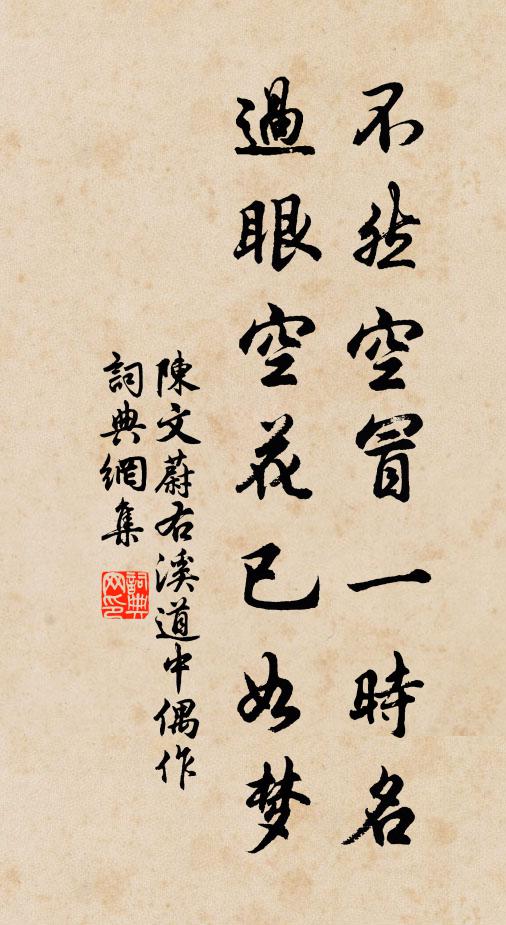 不然空冒一時名
過眼空花已如梦
陳文蔚右溪道中偶作
詞典網集
詞典网印